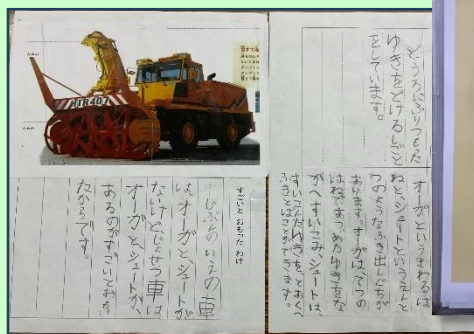 どうろにふりつもった
ゆきをどけるしごと
をしています。
オーガというまわるは
ねと、シュートというえんと
つのようなふき出しぐちが
あります。オーガは、てつの
はねでまつめたゆきをな
かへすいこみ、シュートは、
すいこんだゆきをとおくへ
ふきとばすことができます。
HTR407
すごいと おもった わけ
じぶんのいえの車
は、オーガと、シュートが
ないけど、じょせつ車は
オーガと、シュートが、
あるのがすごいとおもっ
たからです。